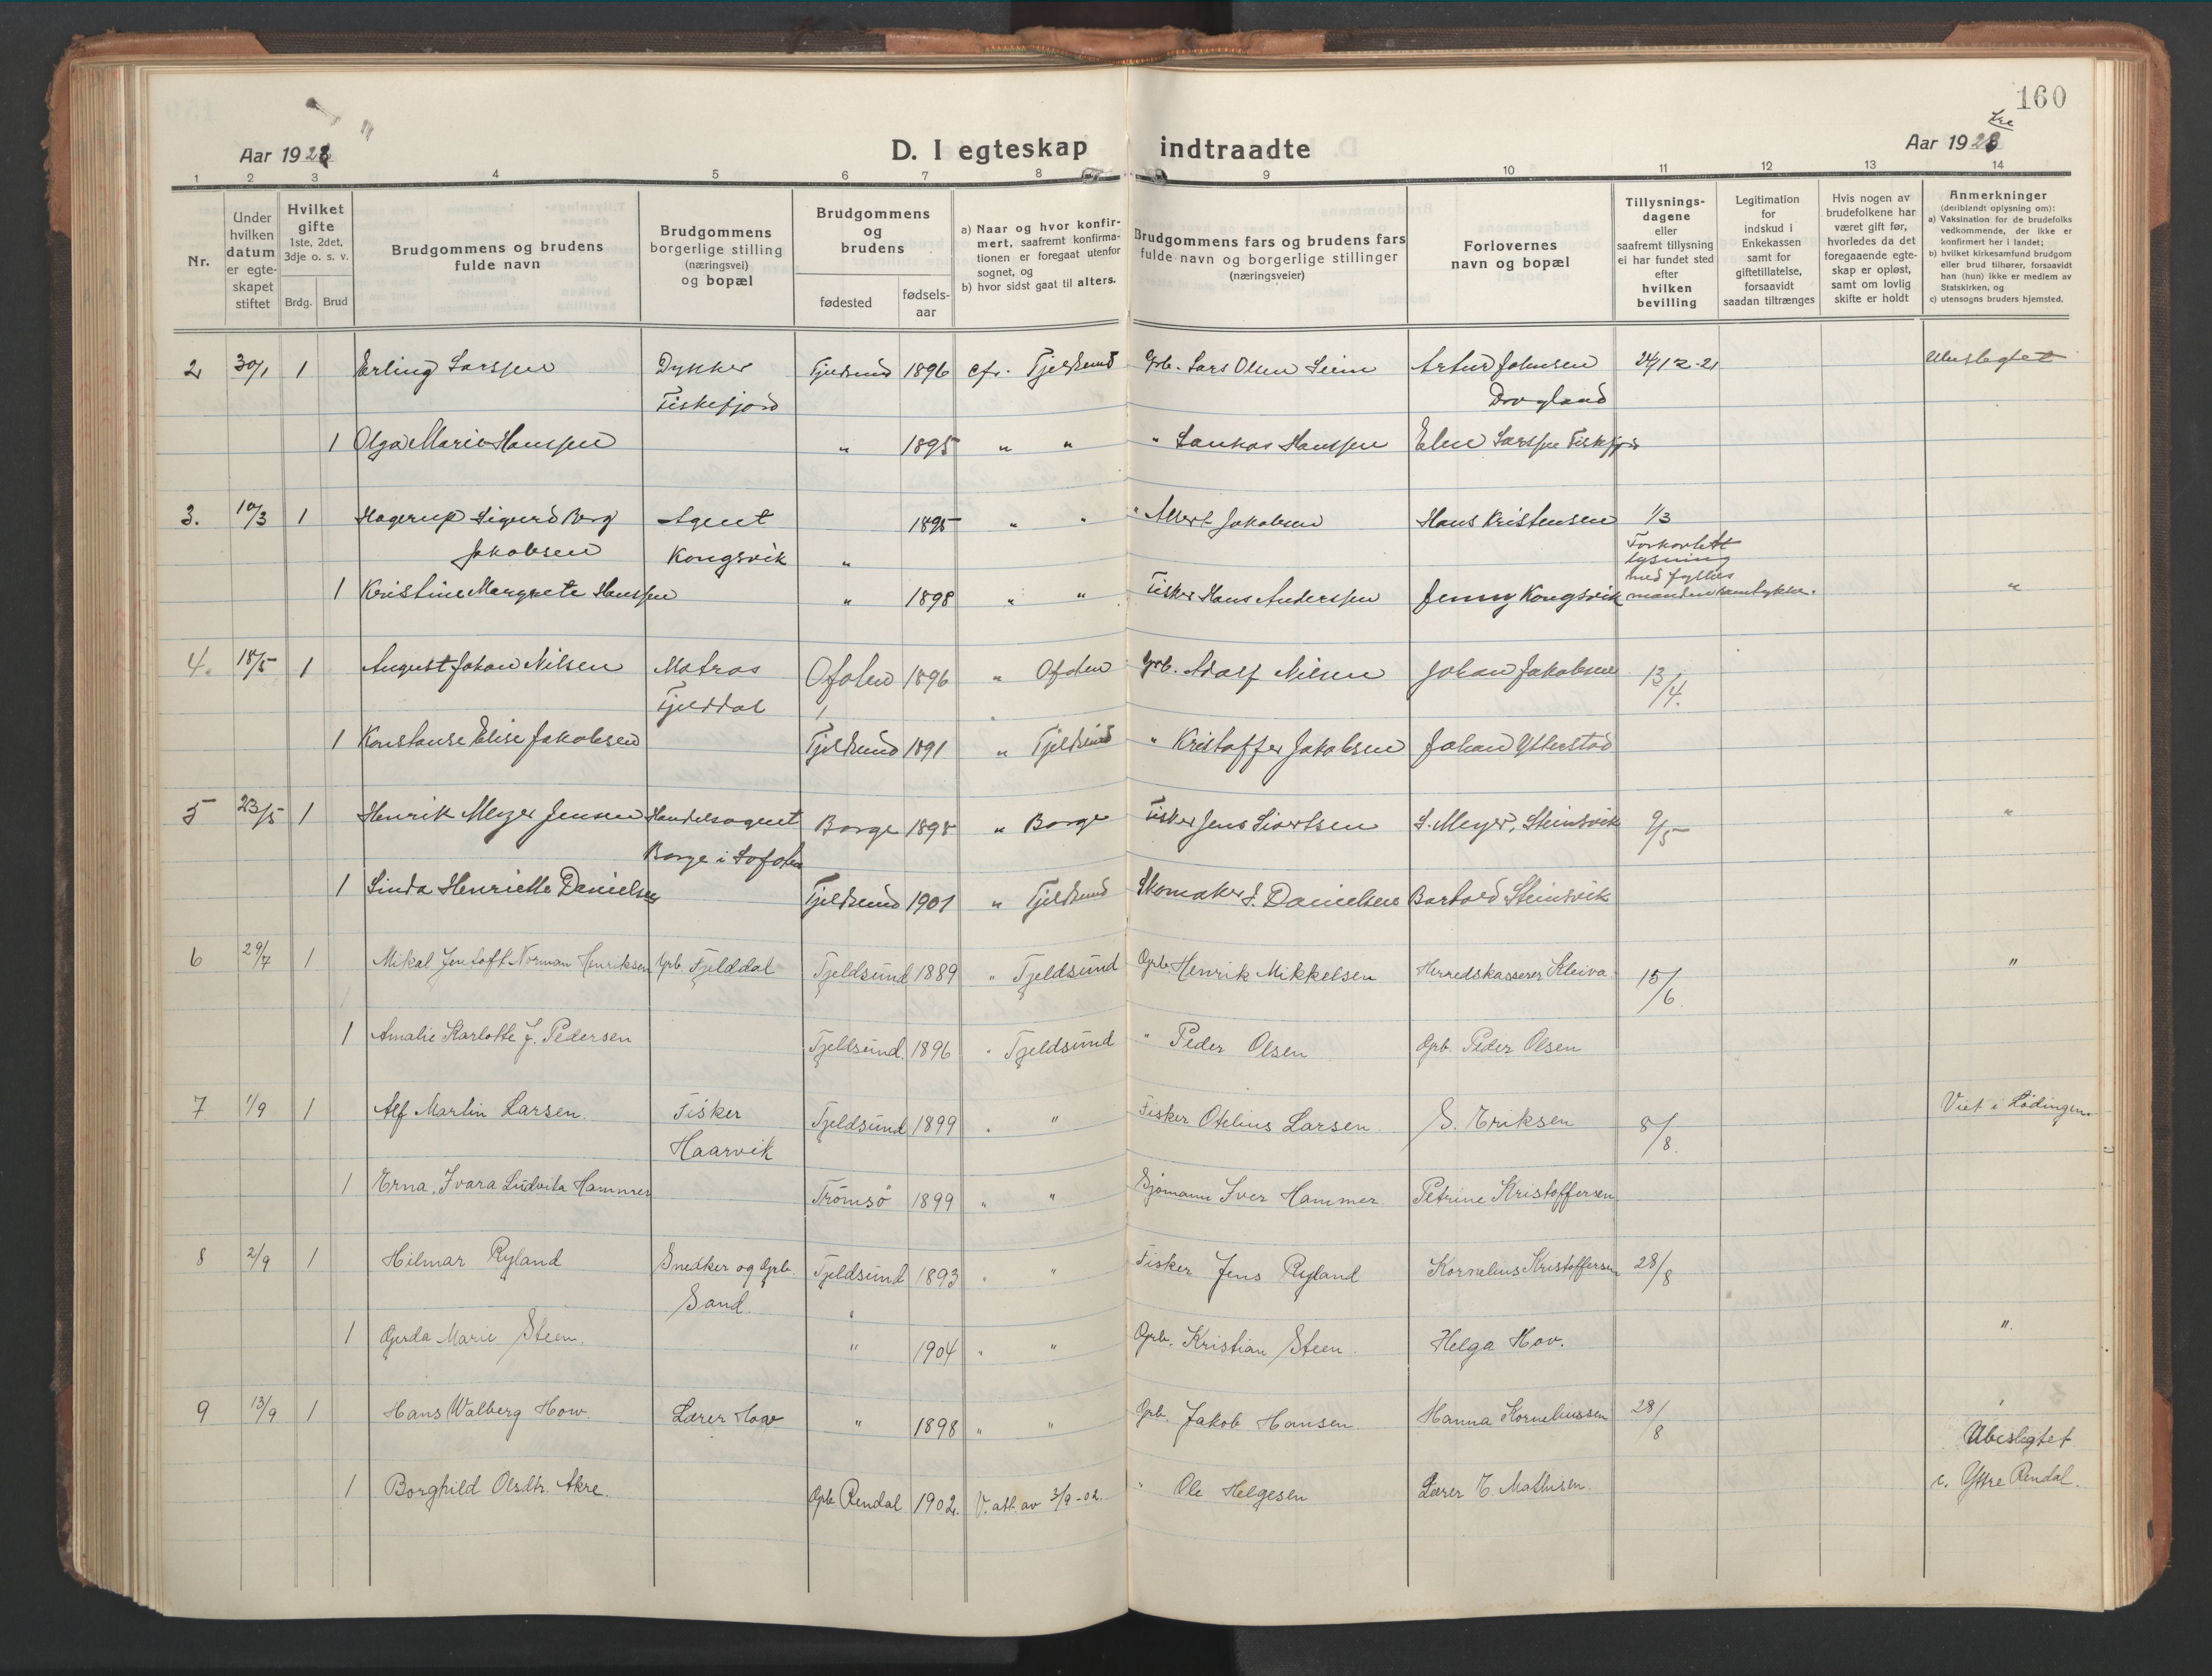 160
Aar 192
D. I egteskap indtraadte
Aar 192
1 2 3 4 5 6 7 8 9 10 11 12 13 14
Nr.
Under hvilken datum er egte-skapet stiftet
Hvilket gifte
1ste, 2det, 3dje o. s. v.
Brdg. Brud
Brudgommens og brudens fulde navn
Brudgommens borgerlige stilling (næringsvei) og bopæl
Brudgommens og brudens
fødested
fødsels-aar
a) Naar og hvor konfir-mert, saafremt konfirma-tionen er foregaat utenfor sognet, og
b) hvor sidst gaat til alters.
Brudgommens fars og brudens fars fulde navn og borgerlige stillinger (næringsveier)
Forlovernes navn og bopæl
Tillysnings-dagene eller saafremt tillysning ei har fundet sted efter hvilken bevilling
Legitimation for indskud i Enkekassen samt for giftetillatelse, forsaavidt saadan tiltrænges
Hvis nogen av brudefolkene har været gift før, hvorledes da det foregaaende egte-skap er opløst, samt om lovlig skifte er holdt
Anmerkninger
(deriblandt oplysning om):
a) Vaksination for de brudefolks vedkommende, der ikke er konfirmert her i landet;
b) hvilket kirkesamfund brudgom eller brud tilhører, forsaavidt han (hun) ikke er medlem av Statskirken, og
c) utensogns bruders hjemsted.
2 30/1 1 Erling Larssen Dykker Tjeldsund 1896 cfr. Tjeldsund Grb. Lars Olsen Seim Artur Johnsen 24/12-21 Ubeslegtet
Fiskefjord
1 Olga Marie Hanssen " 1895 " " " Hanssen Larssen Fiskefj.
3. 10/3 1 Hagerup Sigurd Berg Agent 1895 " " " Albert Jakobsen Hans Kristensen 1/3
Jakobsen Kongsvik " Forkortet
lysning
med fylkes
1 Kristine Margrete Hanssen " 1898 " " Fisker Hans Anderssen Jenny Kongsvik mandens samtykke. "
4. 18/5 1 August Johan Nilsen Matros Ofoten 1896 " Ofoten Grb. Adolf Nilsen Johan Jakobsen 13/4.
Fjelddal
1 Konstanse Elise Jakobsen Tjeldsund 1891 " Tjeldsund " Kristoffer Jakobsen Johan Ytterstad
5 23/5 1 Henrik Meyer Jensen Handelsagent Borge 1898 " Borge Fisker Jens Sivertsen S. Meyer, Steinsvik 9/5 "
Borge i Lofoten
1 Linda Henriette Danielsen Tjeldsund 1901 " Tjeldsund Skomaker J. Danielsen Bartold Steinsvik
6 29/7 1 Mikal Jentoft Norman Henriksen Grb. Fjelddal Tjeldsund 1889 " Tjeldsund Grb. Henrik Mikkelsen Herredskasserer Kleiva 15/6. "
1 Amalie Karlotte J. Pedersen Tjeldsund. 1896 " Tjeldsund " Peder Olsen Grb. Peder Olsen
7 1/9 1 Alf Martin Larsen. Fisker Tjeldsund 1899 " " Fisker Otelius Larsen. S. Eriksen 5/8. Viet i Lødingen.
Haarvik
1 Erna Ivara Ludvika Hammer Tromsö 1899 " " Sjömann Iver Hammer Petrine Kristoffersen
8 2/9 1 Hilmar Ryland Snedker og Grb. Tjeldsund 1893 " " Fisker Jens Ryland Kornelius Kristoffersen 28/8
Sand "
1 Gerda Marie Steen. " 1904 " " Grb. Kristian Steen. Helga Hov. "
9 13/9 1 Hans Walberg How. Lærer How " 1898 " " Grb. Jakob Hansen. Hanna Korneliussen 28/8
Ubeslegtet
1 Borghild Olsdtr. Akre. Rendal 1902. V. att. av 3/9-02. " Ole Helgesen Lærer E. Mathisen. c. Ytre Rendal.